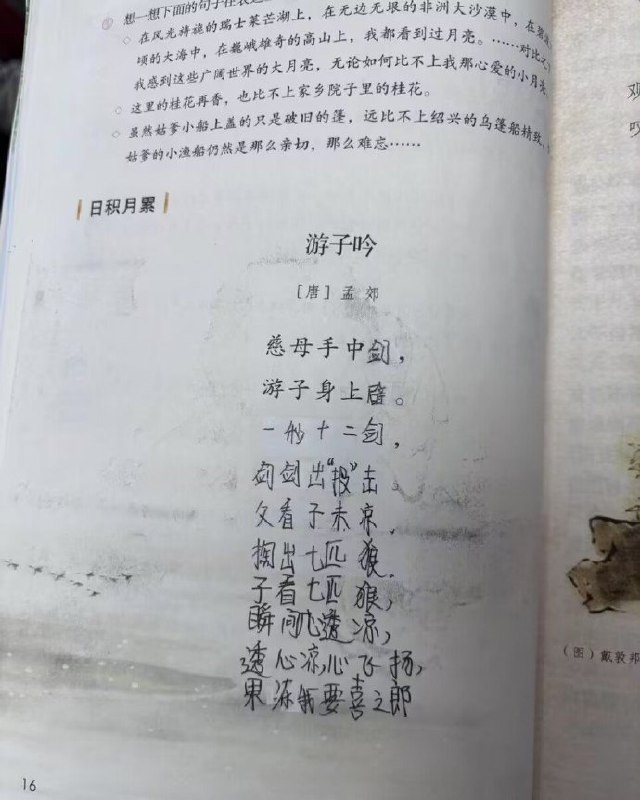 想一想下面的句子在表达
◇ 在风光旖旎的瑞士莱芒湖上，在无边无垠的非洲大沙漠中，在碧波
顷的大海中，在巍峨雄奇的高山上，我都看到过月亮。……对比之下
我感到这些广阔世界的大月亮，无论如何比不上我那心爱的小月亮
◇ 这里的桂花再香，也比不上家乡院子里的桂花。
◇ 虽然姑爹小船上盖的只是破旧的篷，远比不上绍兴的乌篷船精致，
姑爹的小渔船仍然是那么亲切，那么难忘……
日积月累
游子吟
［唐］孟 郊
慈母手中剑，
游子身上劈。
一秒十二剑，
剑剑出“投”击
父看子未凉，
掏出七匹狼。
子看七匹狼，
瞬间心透凉，
透心凉，心飞扬，
果冻我要喜之郎
16
（图）戴敦邦